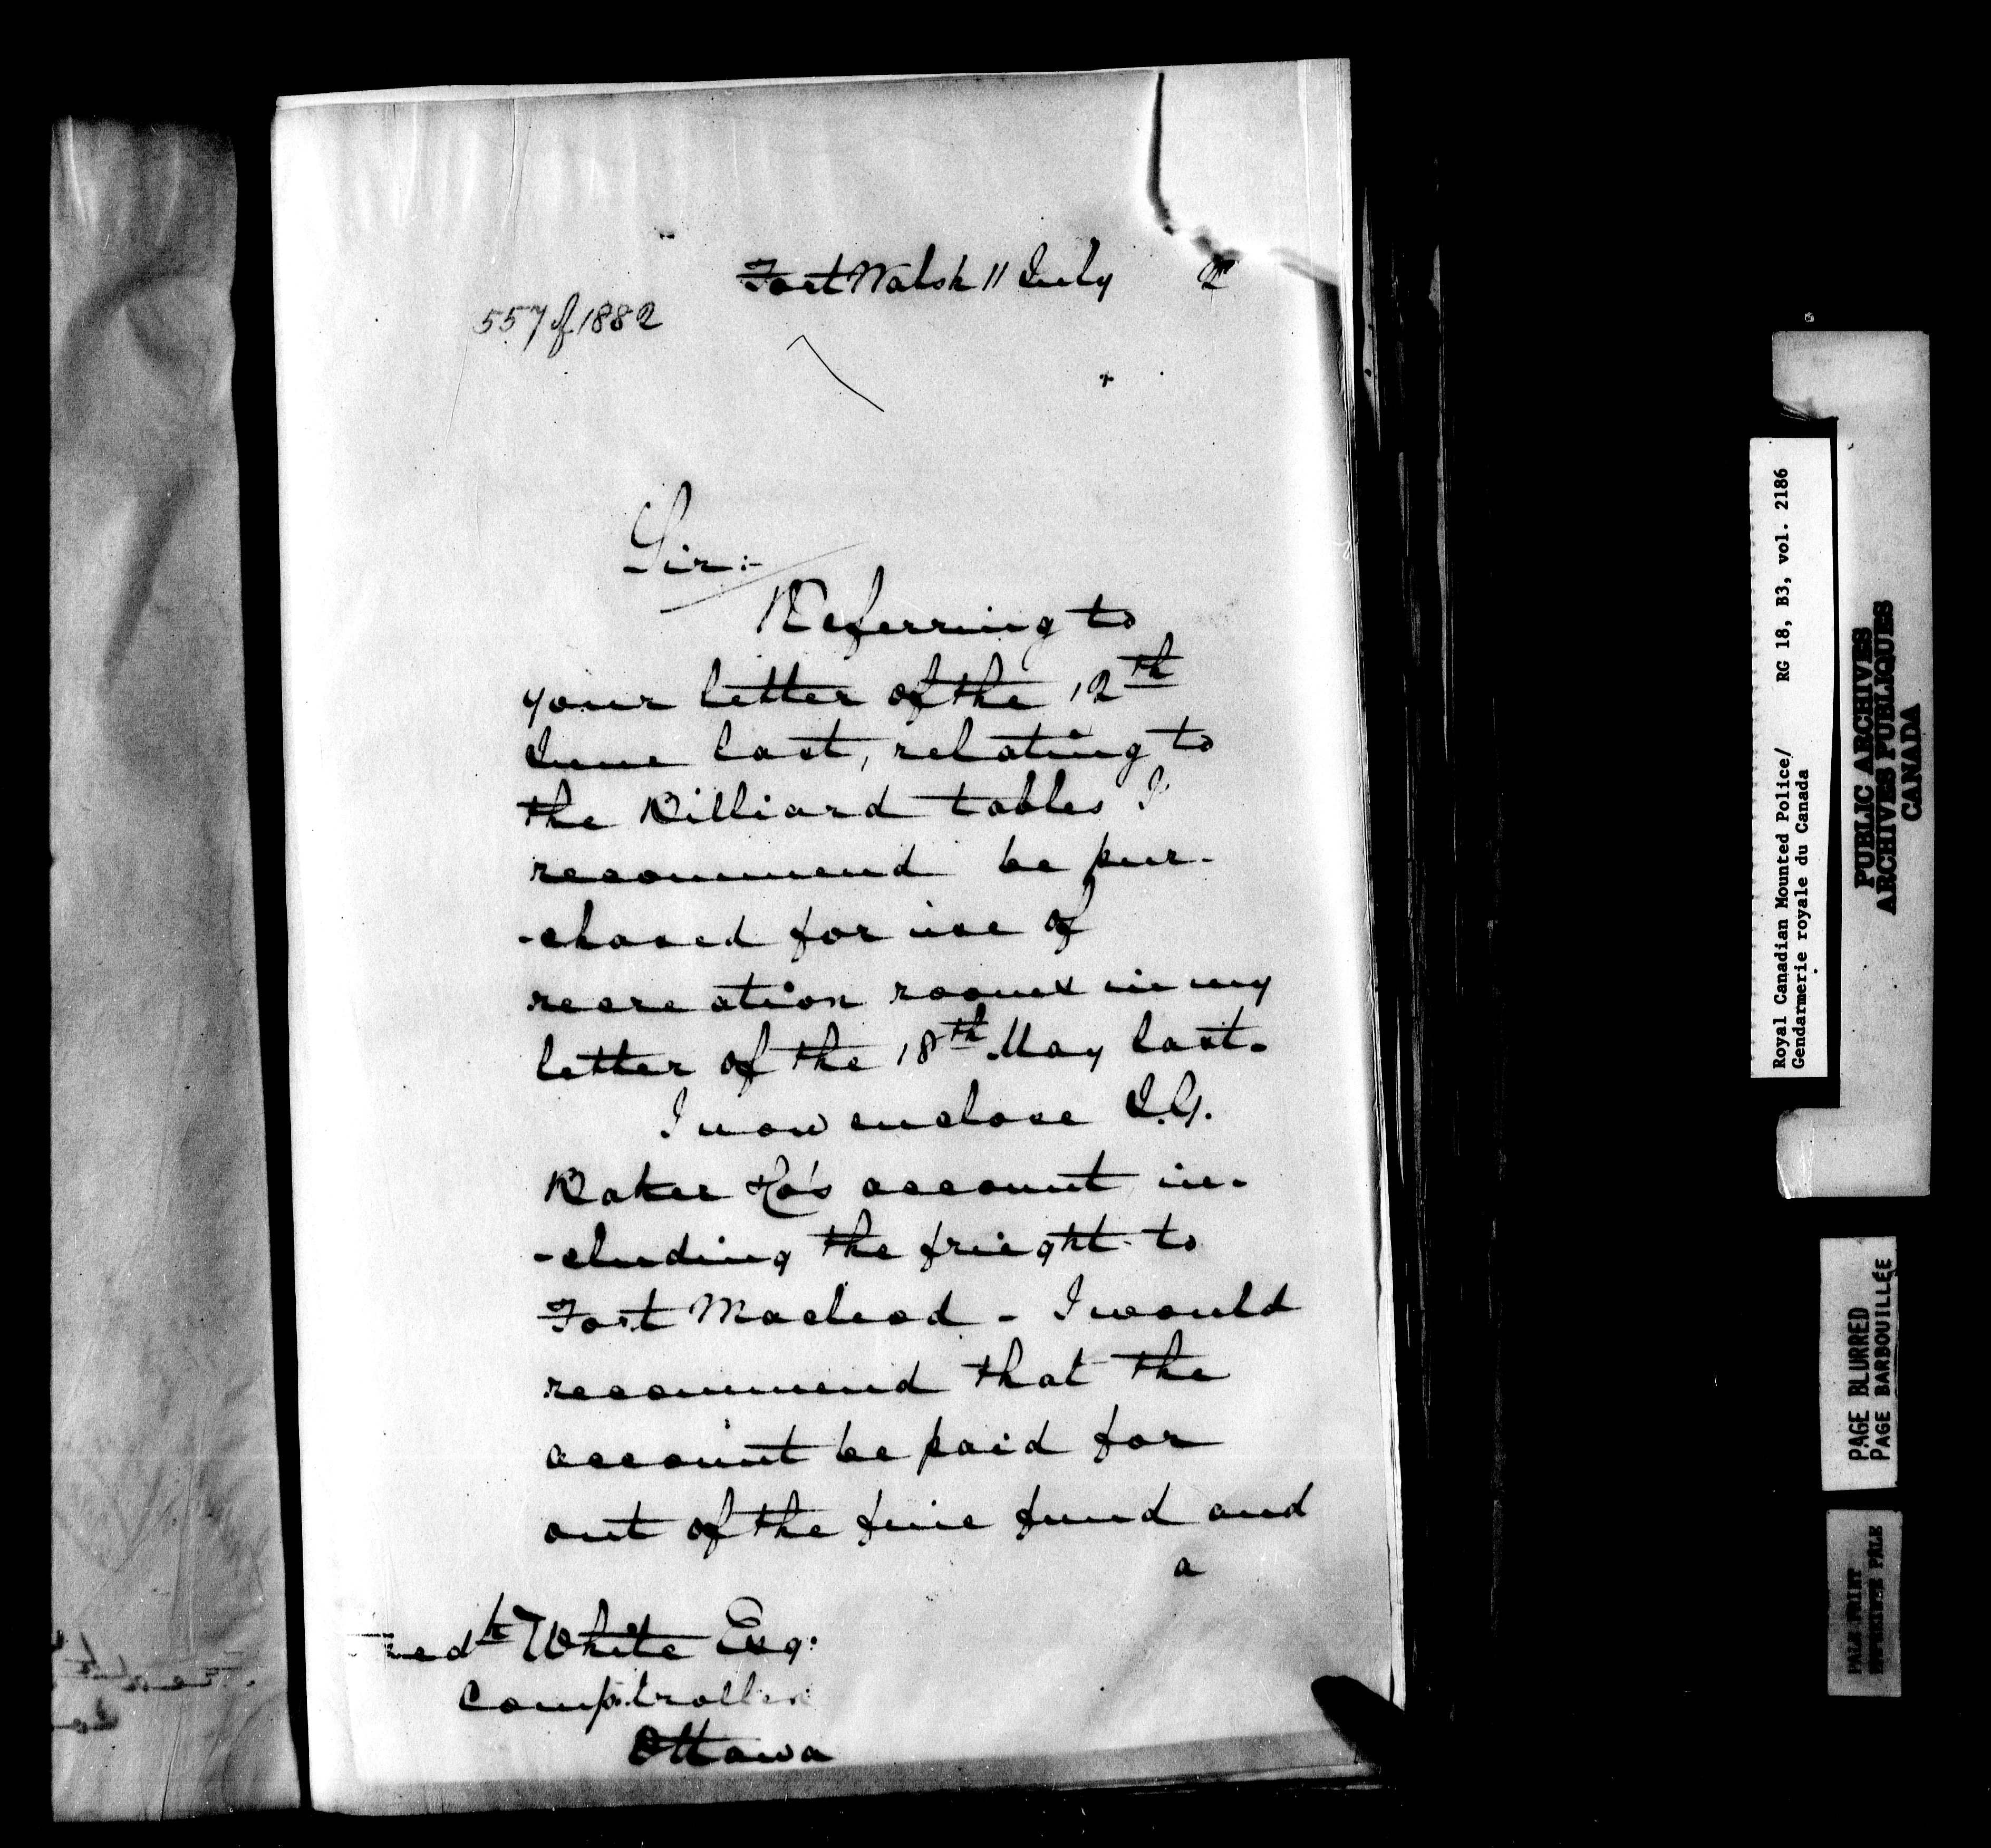 Fort Walsh 11 July 2
557 of 1882
Sir:-
Referring to
your letter of the 12th
June last, relating to
the Billiard tables I
recommend be pur-
-chased for use of
recreation rooms in my
letter of the 18th May last.
I now enclose I.G.
Baker & Co's account in-
-cluding the frieght to
Fort Macleod - I would
recommend that the
account be paid for
out of the fine fund and
a
redk White Esq:
Comptroller
Ottawa
Royal Canadian Mounted Police/ RG 18, B3, vol. 2186
Gendarmerie royale du Canada
PUBLIC ARCHIVES
ARCHIVES PUBLIQUES
CANADA
PAGE BLURRED
PAGE BARBOUILLÉE
PALE PRINT
IMPRIMÉE PÂLE